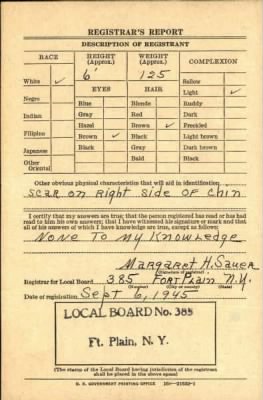 REGISTRAR'S REPORT
DESCRIPTION OF REGISTRANT
RACE HEIGHT (Approx.) WEIGHT (Approx.) COMPLEXION
6' 125
White ✓ Sallow
EYES HAIR Light ✓
Negro Blue Blonde Ruddy
Indian Gray Red Dark
Hazel Brown ✓ Freckled
Filipino Brown ✓ Black Light brown
Japanese Black Gray Dark brown
Other Oriental Bald Black
Other obvious physical characteristics that will aid in identification
Scar on Right Side of Chin
I certify that my answers are true; that the person registered has read or has had
read to him his own answers; that I have witnessed his signature or mark and that
all of his answers of which I have knowledge are true, except as follows:
None To my Knowledge
Margaret H. Sauer
(Signature of registrar)
Registrar for Local Board 385 Fort Plain N.Y.
(Number) (City or county) (State)
Date of registration Sept 6, 1945
LOCAL BOARD No. 385
Ft. Plain, N. Y.
(The stamp of the Local Board having jurisdiction of the registrant
shall be placed in the above space)
U. S. GOVERNMENT PRINTING OFFICE